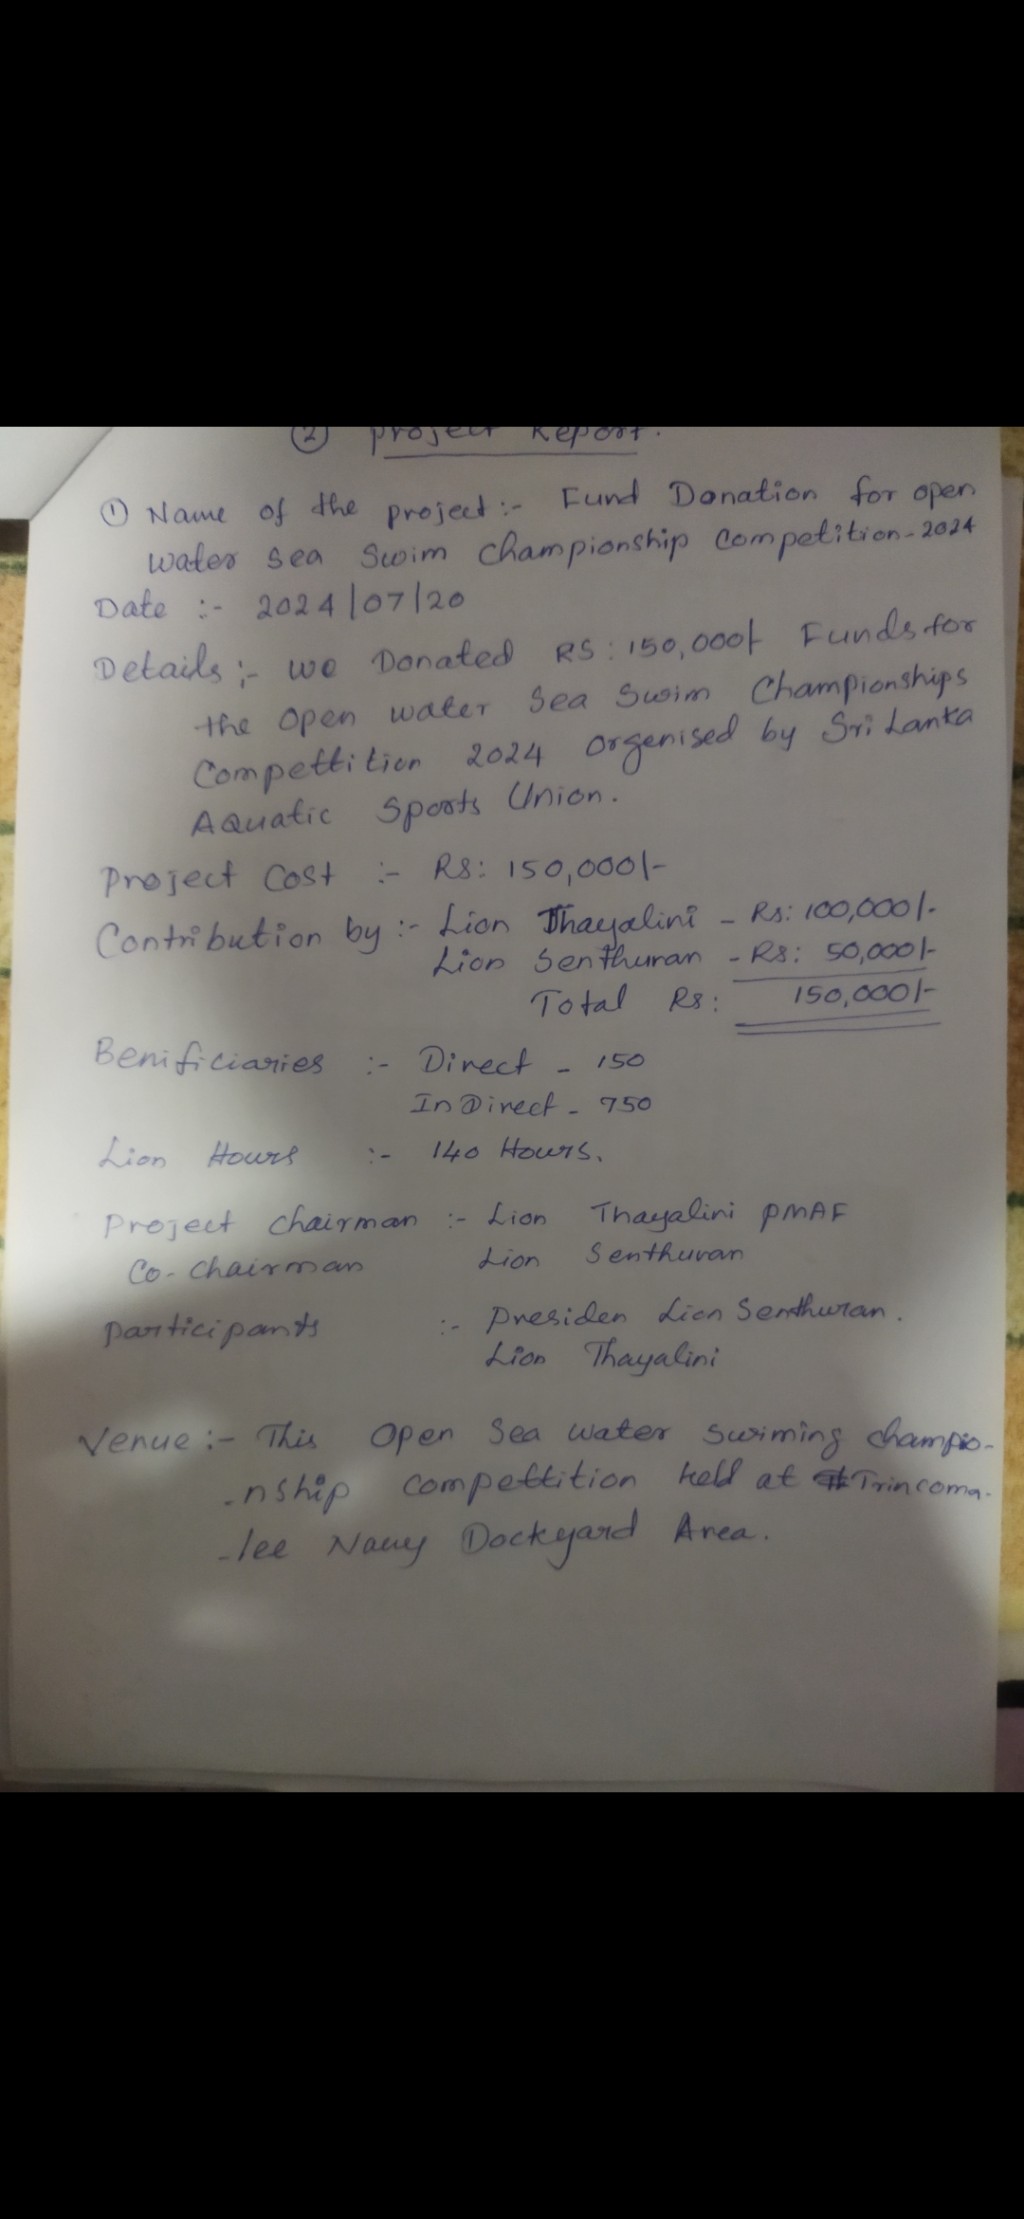 ② Project Report.
① Name of the project :- Fund Donation for open
water Sea Swim Championship Competition - 2024
Date :- 2024/07/20
Details :- we Donated RS: 150,000/- Funds for
the Open water Sea Swim Championships
Compettition 2024 orgenised by Sri Lanka
Aquatic Sports Union.
Project Cost :- Rs: 150,000/-
Contribution by :- Lion Thayalini - Rs: 100,000/-
Lion Senthuran - Rs: 50,000/-
Total Rs: 150,000/-
Benificiaries :- Direct - 150
InDirect - 750
Lion Hours :- 140 Hours.
Project chairman :- Lion Thayalini PMAF
Co-chairman Lion Senthuran
Participants :- Presiden Lion Senthuran.
Lion Thayalini
Venue :- This Open Sea water Swiming champio-
-nship compettition held at Trincoma-
-lee Navy Dockyard Area.